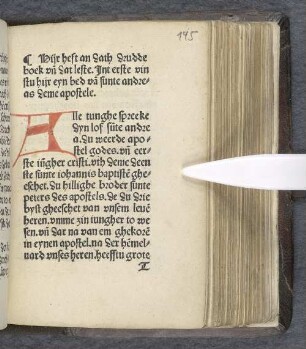 145
¶ Hijr heft an dath drudde
boek vn̄ dat leste. Int erste vin
stu hijr eyn bed vā sunte andre-
as deme apostele.
Alle tunghe spreeke
dyn lof sūte andre
a. du weerde apo
stel godes. vn̄ eer-
ste iūgher cristi. vth deme deen
ste sunte iohannis baptistē ghe-
eschet. du hillighe broder sunte
peters des apostels. de du drie
byst gheeschet van vnsem leuē
heren. vmme zin iungher to we
sen. vn̄ dat na van em ghekorē
in eynen apostel. na der hēmel-
uard vnses heren. heefstu grote